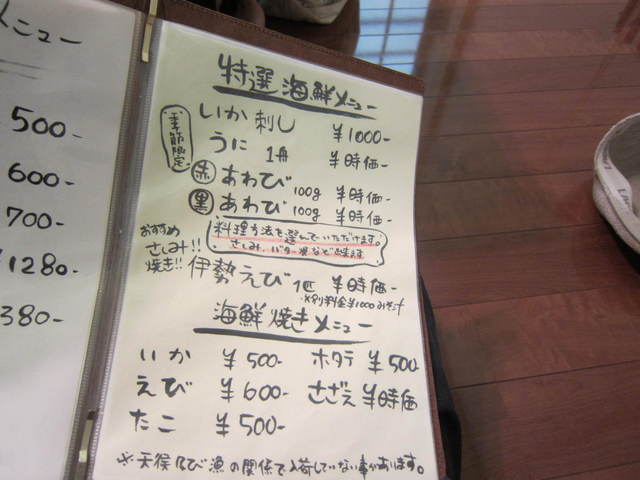 メニュー
500-
600-
700-
1280-
380-
特選 海鮮メニュー
季節限定
いか刺し ¥1000-
うに 1舟 ¥時価-
赤 あわび 100g ¥時価-
黒 あわび 100g ¥時価-
料理方法を選んでいただけます。
さしみ、バター焼など出来ます
おすすめ
さしみ!!
焼き!!
伊勢えび 1匹 ¥時価-
※別料金¥1000みそ汁
海鮮焼きメニュー
いか ¥500- ホタテ ¥500-
えび ¥600- さざえ ¥時価
たこ ¥500-
※天候及び漁の関係で入荷していない事があります。